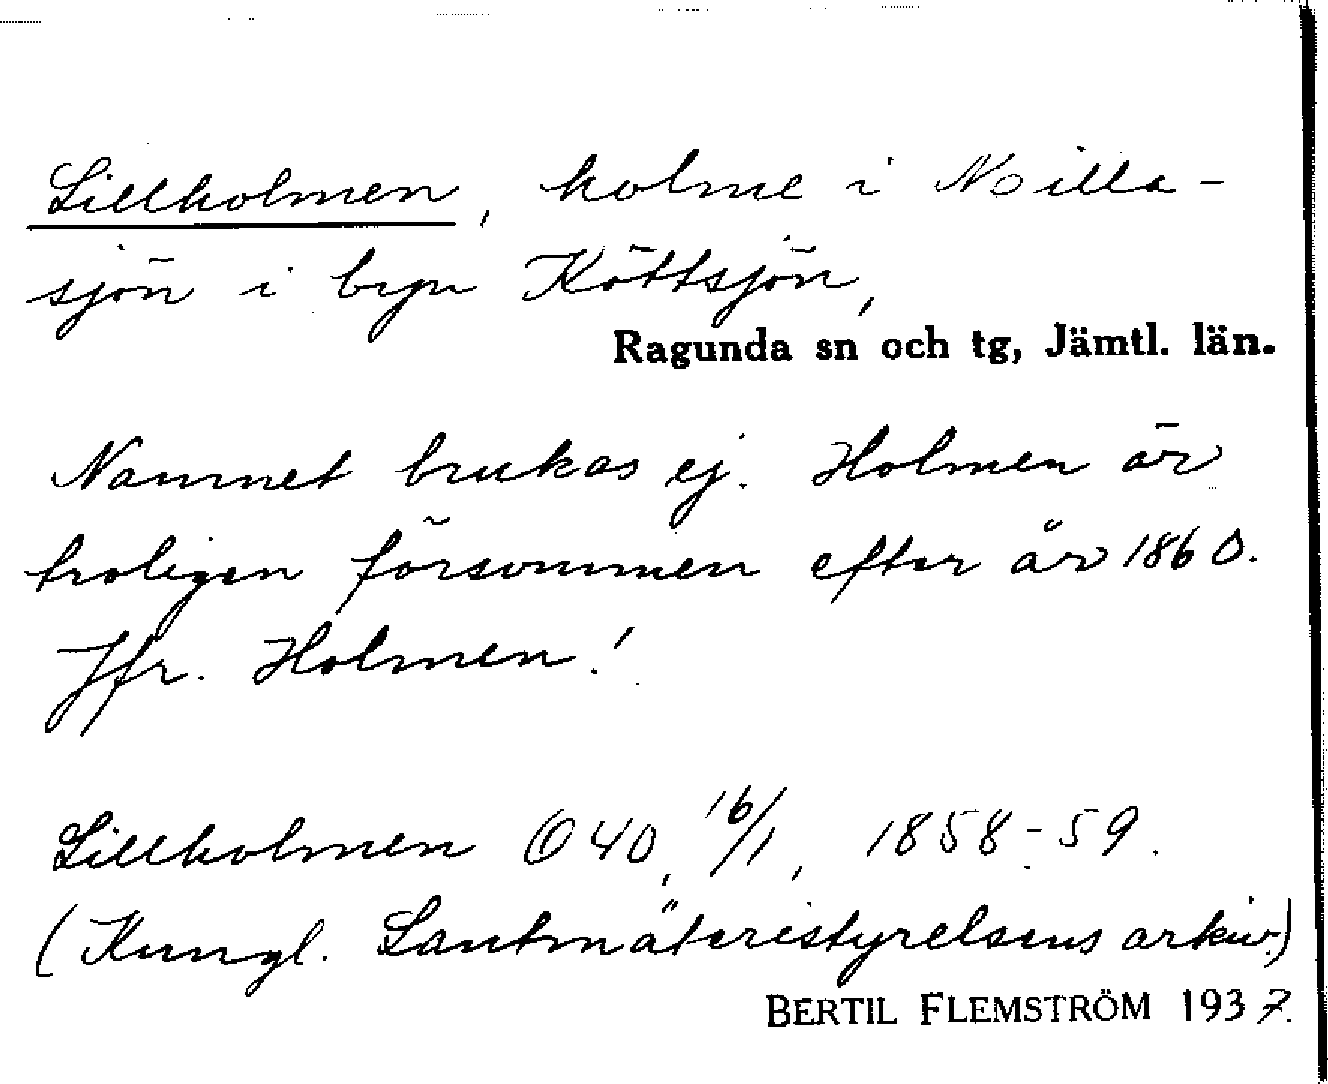 Lillholmen, holme i Noilla-
sjön i byn Köttsjön,
Ragunda sn och tg, Jämtl. län.
Namnet brukas ej. Holmen är
troligen försvunnen efter år 1860.
Jfr. Holmen!
Lillholmen O 40, 16/1, 1858-59.
(Kungl. Lantmäteristyrelsens arkiv.)
BERTIL FLEMSTRÖM 1937.